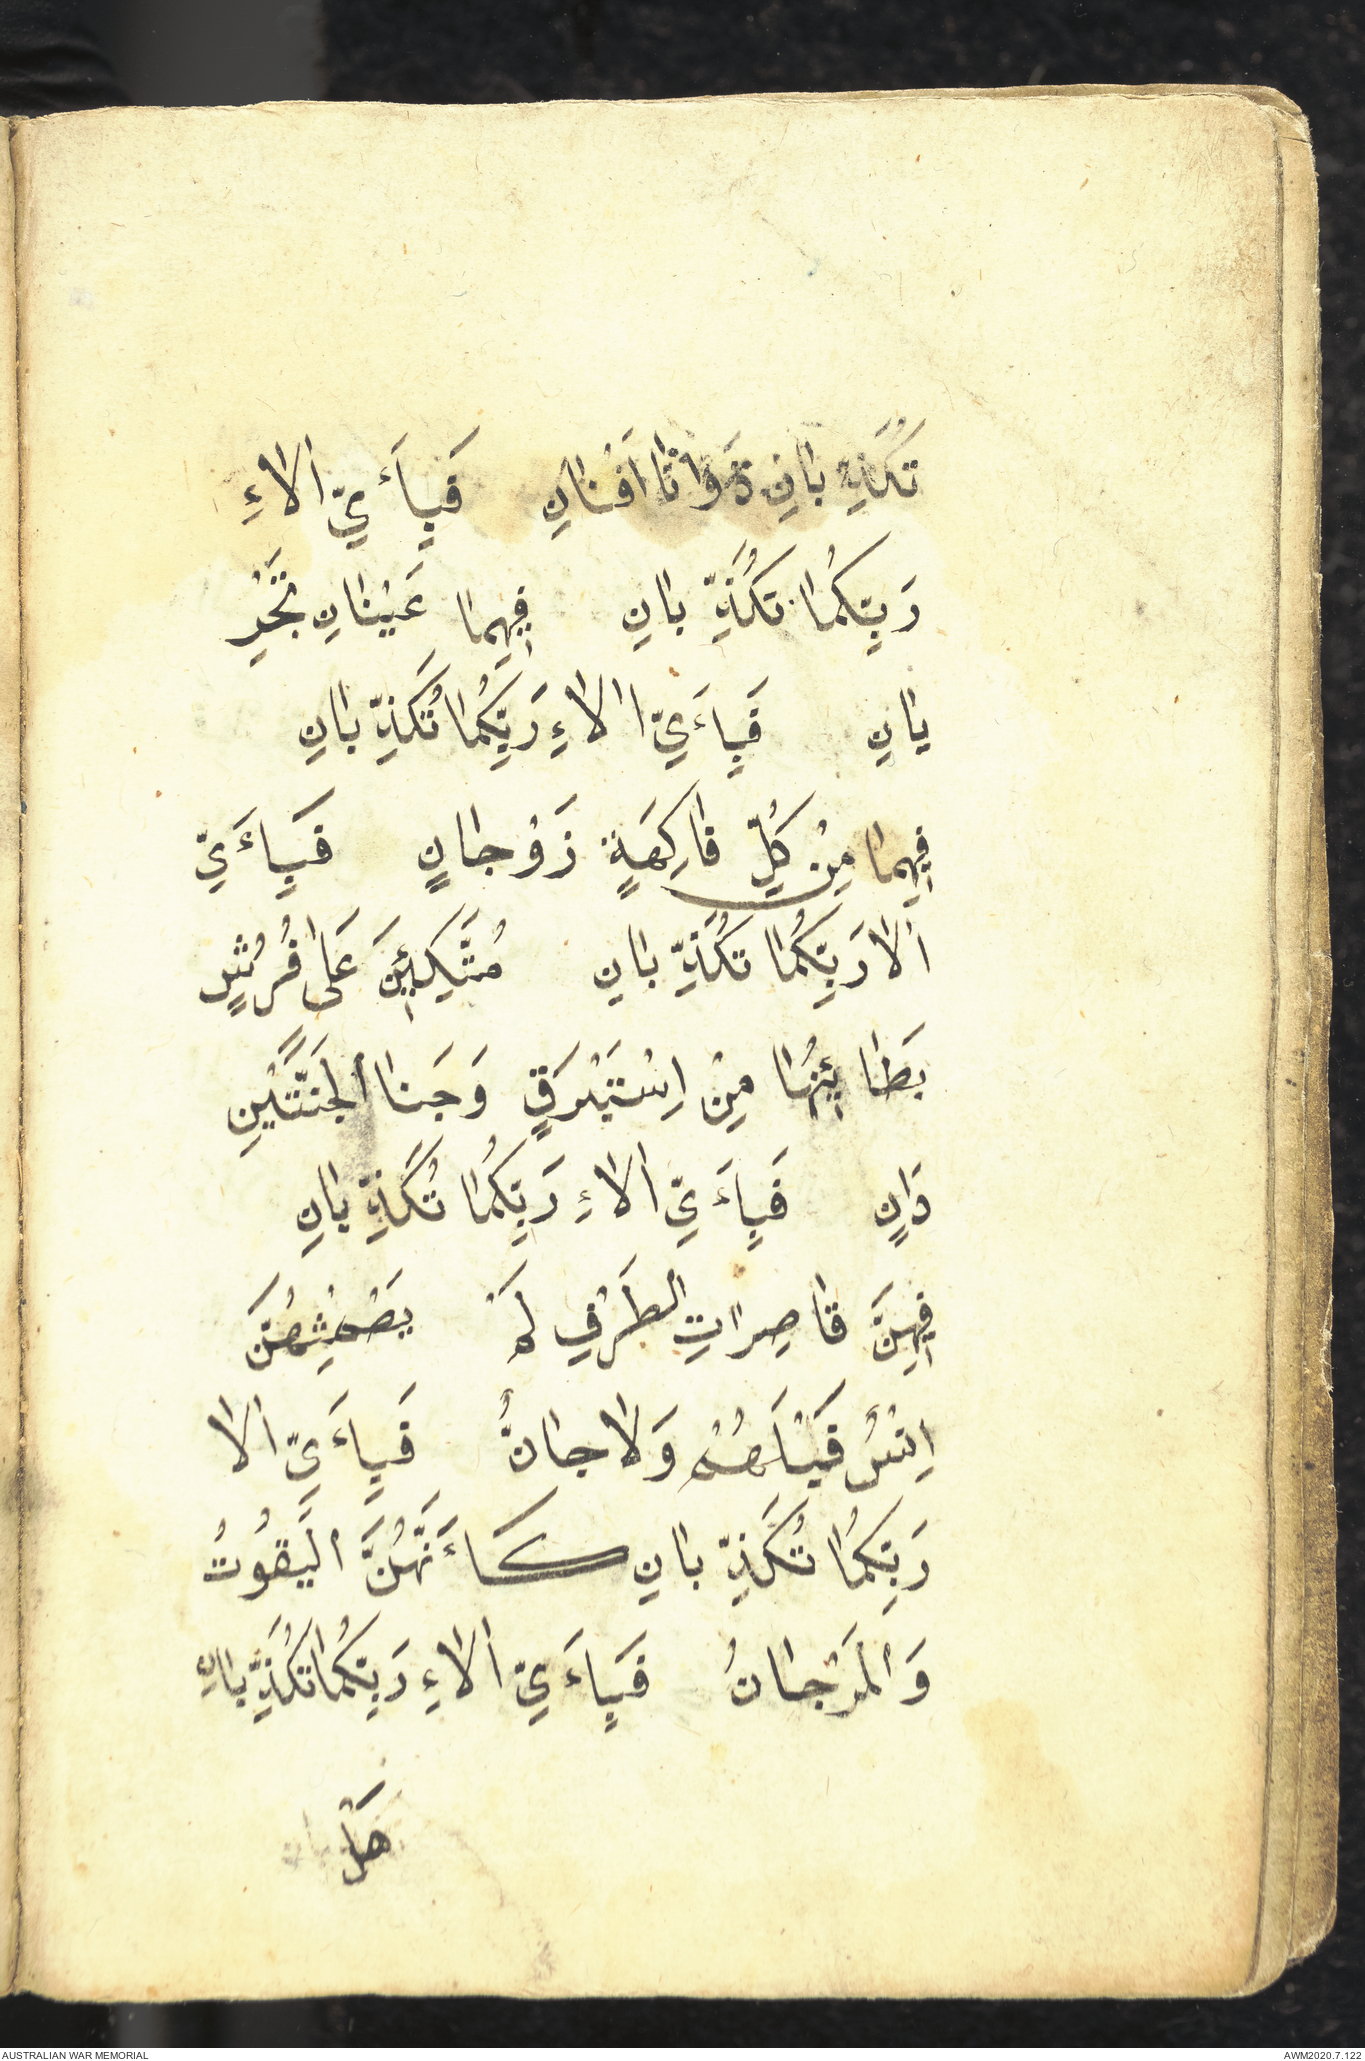 تُكَذِّبَانِ ذَوَاتَا اَفْنَانٍ فَبِاَءَيِّ اٰلَاءِ
رَبِّكُمَا تُكَذِّبَانِ فِيهِمَا عَيْنَانِ تَجْرِ
يَانِ فَبِاَءَيِّ اٰلَاءِ رَبِّكُمَا تُكَذِّبَانِ
فِيهِمَا مِنْ كُلِّ فَاكِهَةٍ زَوْجَانٍ فَبِاَءَيِّ
اٰلَا رَبِّكُمَا تُكَذِّبَانِ مُتَّكِئِينَ عَلٰى فُرُشٍ
بَطَائِنُهَا مِنْ اِسْتَبْرَقٍ وَجَنَا الْجَنَّتَيْنِ
دَانٍ فَبِاَءَيِّ اٰلَاءِ رَبِّكُمَا تُكَذِّبَانِ
فِيهِنَّ قَاصِرَاتِ الطَّرْفِ لَمْ يَطْمِثْهُنَّ
اِنْسٌ قَبْلَهُمْ وَلَا جَانٌّ فَبِاَءَيِّ اٰلَا
رَبِّكُمَا تُكَذِّبَانِ كَاَءَنَّهُنَّ الْيَقُوتُ
وَالْمَرْجَانُ فَبِاَءَيِّ اٰلَاءِ رَبِّكُمَا تُكَذِّبَانِ
هَلْ
AUSTRALIAN WAR MEMORIAL AWM2020.7.122